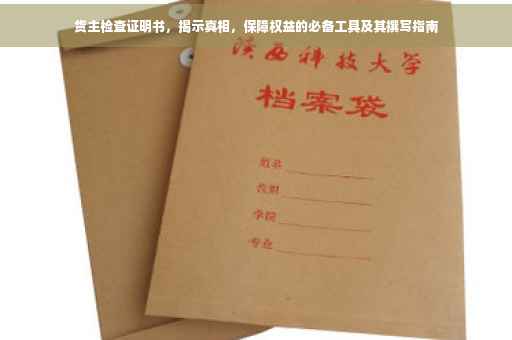 货主检查证明书，揭示真相，保障权益的必备工具及其撰写指南
陕西科技大学
档案袋
姓名
学院
专业